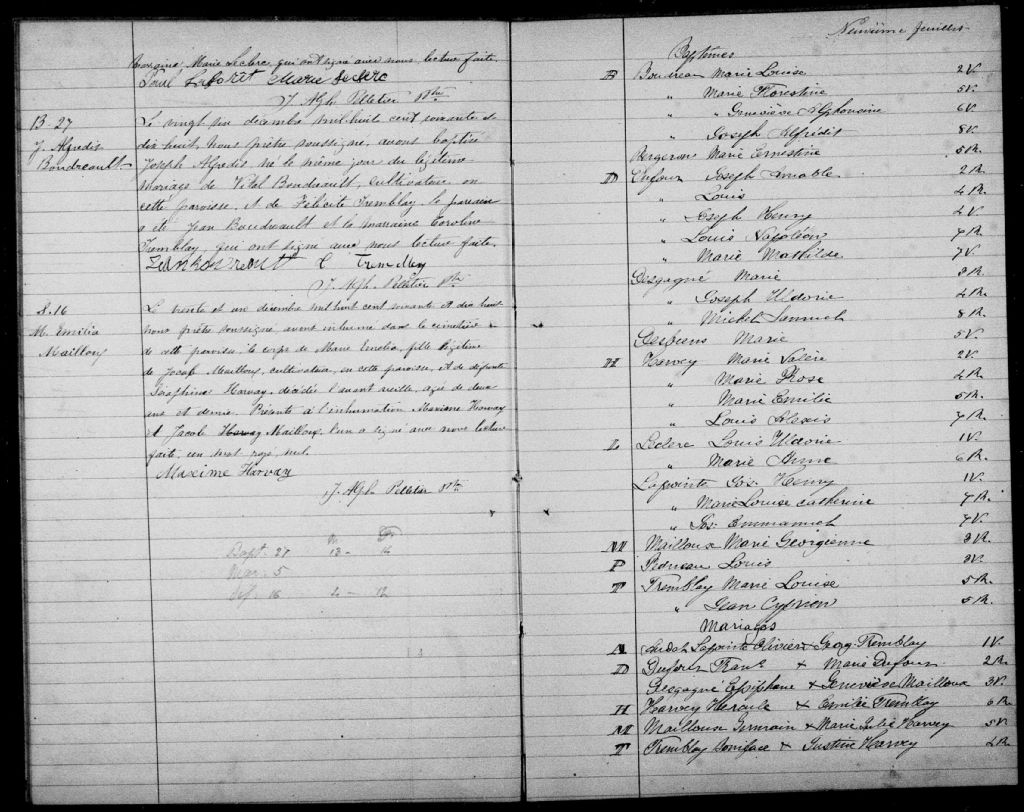 Marraine Marie Leclerc, qui ont signé avec nous lecture faite.
Paul Laforet Marie Leclerc
J. Alph. Pelletier Ptre
B-27
J. Alfredis
Boudreault
Le vingt six decembre mil huit cent soixante et
dix huit, Nous prêtre soussigné, avons baptisé
Joseph Alfredis né le même jour du légitime
mariage de Vital Boudreault, cultivateur, en
cette paroisse, et de Félicité Tremblay, le parrain
a été Jean Boudreault et la marraine Caroline
Tremblay, qui ont signé avec nous lecture faite.
C Tremblay
J. Alph. Pelletier Ptre
S.16
M. Emilia
Mailloux
Le trente et un décembre mil huit cent soixante et dix huit
nous prêtre soussigné, avons inhumé dans le cimetière
de cette paroisse le corps de Marie Emelia, fille légitime
de Jacob Mailloux, cultivateur, en cette paroisse, et de défunte
Séraphine Harvay, décédée l'avant veille, agée de deux
ans et demie. Présents à l'inhumation Maxime Harvay
et Jacob Harvay Mailloux, l'un a signé avec nous lecture
faite, un mot rayé nul.
Maxime Harvay
J. Alph. Pelletier Ptre
M F
Bapt. 27 13 - 14
Mar. 5
Sep. 16 12
Neuvième feuillet
Baptêmes
B Boudreau Marie Louise 2V.
" Marie Florestine 5V.
" Geneviève Alphonsine 6V.
" Joseph Alfrédis 8V.
Bergeron Marie Ernestine 5R.
D Dufour Joseph Amable 2R.
" Louis 4R.
" Joseph Henry 4V.
" Louis Napoléon 7R.
" Marie Mathilde 7V.
Desgagné Marie 3R.
" Joseph Uldorie 4R.
" Michel Samuel 8R.
Desbiens Marie 5V.
H Harvey Marie Valérie 2V.
" Marie Rose 4R.
" Marie Emilie 5R.
" Louis Alexis 7R.
L Leclerc Louis Uldorie 1V.
" Marie Anne 6R.
Lapointe Jos. Henry 1V.
" Marie Louise Catherine 7R.
" Jos. Emmanuel 7V.
M Mailloux Marie Georgienne 3R.
P Pedneau Louis 3V.
T Tremblay Marie Louise 5R.
" Jean Cyprien 5R.
Mariages
A Audet Lapointe Olivier & Tremblay 1V.
D Dufour Frans & Marie Dufour 2R.
Desgagné Epiphane & Geneviève Mailloux 3V.
H Harvey Hercule & Emilie Tremblay 6R.
M Mailloux Germain & Marie Julie Harvey 5V.
T Tremblay Boniface & Justine Harvey 4R.